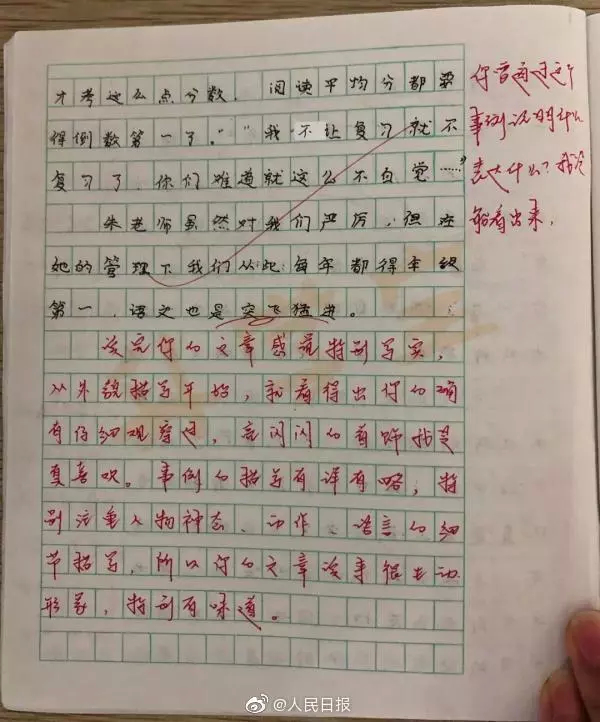 才考这么点分数，阅读平均分都要
得倒数第一了。”“我不让复习就不
复习了，你们难道就这么不自觉……”
朱老师虽然对我们严厉，但在
她的管理下我们从此每年都得年级
第一，语文也是突飞猛进。
你曾通过这个
事例说明什么
表达什么？我没
能看出来，
读完你的文章感觉特别写实，
从外貌描写开始，就看得出你的确
有仔细观察过，亮闪闪的首饰我是
更喜欢。事例的描写有详有略，特
别注重人物神态、动作、语言的细
节描写，所以你的文章读来很生动
形象，特别有味道。
@人民日报